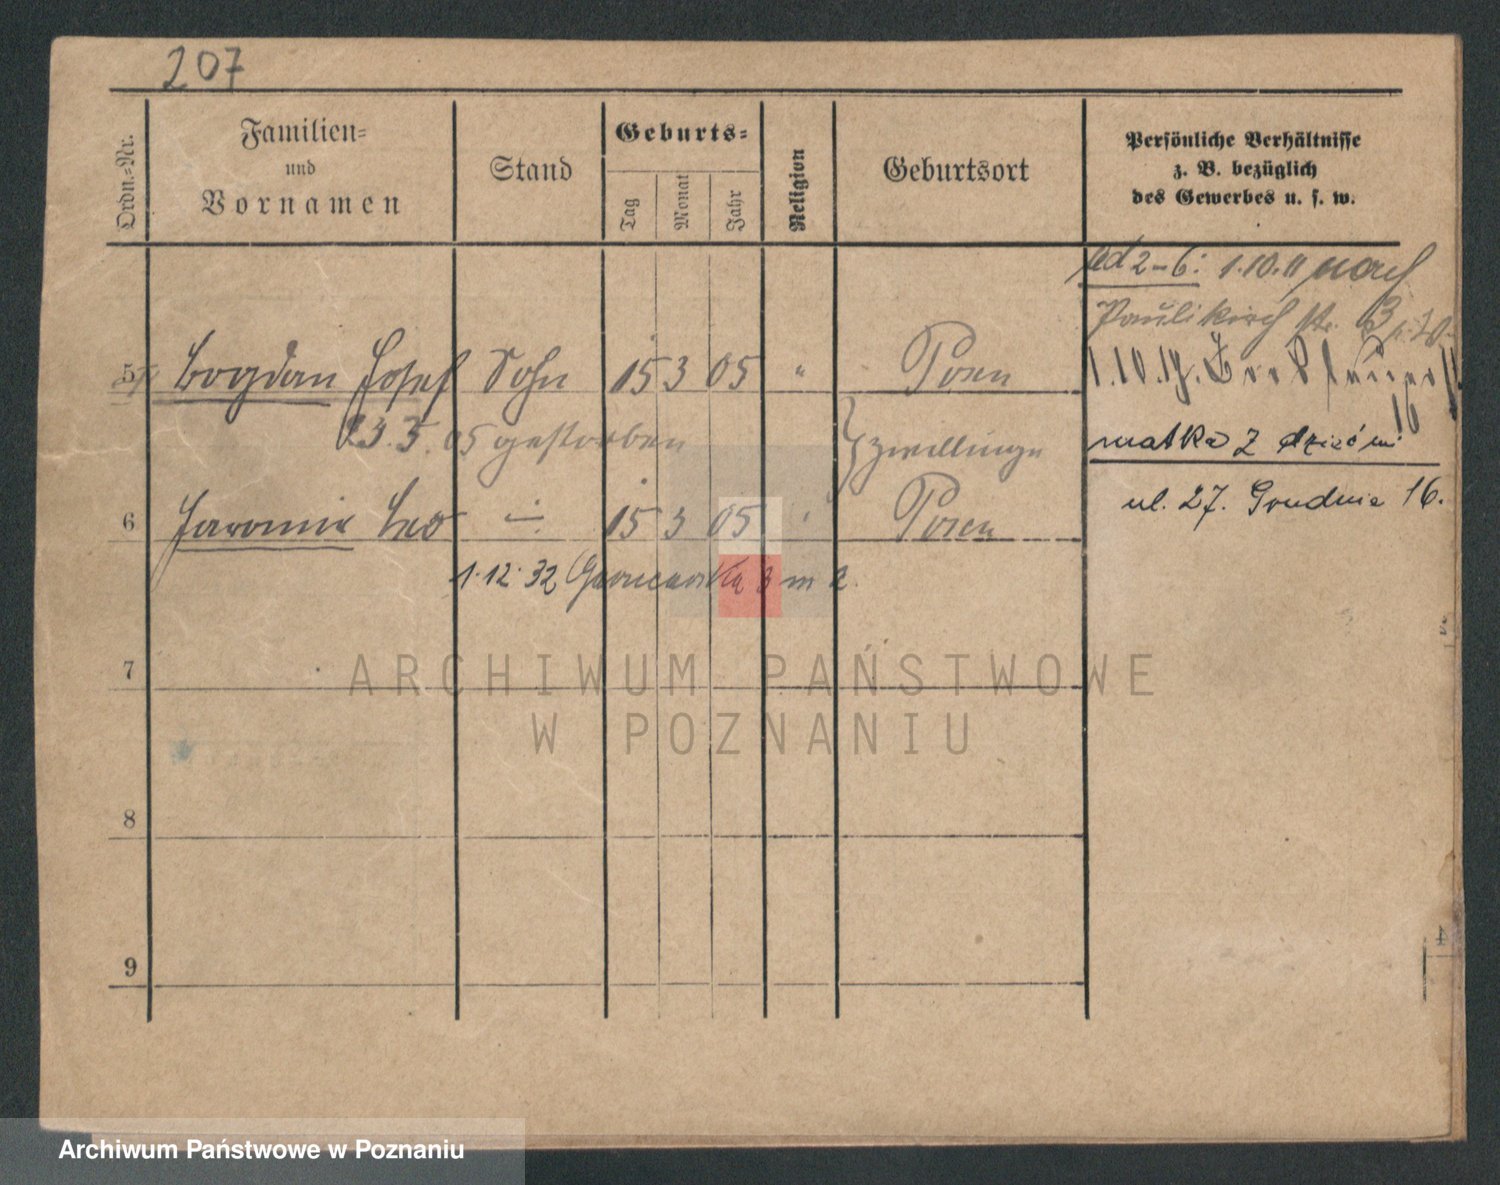 207
Ordn.-Nr.
Familien-
und
Vornamen
Stand
Geburts-
Tag
Monat
Jahr
Religion
Geburtsort
Persönliche Verhältnisse
z. B. bezüglich
des Gewerbes u. s. w.
ad 2-6: 1.10.11 nach
Paulikirch str. 3
5 Bogdan Josef Sohn 15 3 05 " Posen
1.10.
23.3.05 gestorben
Zwillinge
matka z dziećmi
ul. 27. Grudnia 16.
6 Jaromir Leo 15 3 05 Posen
1.12.32 Garncarska 3 m 2.
7
8
9
ARCHIWUM PAŃSTWOWE
W POZNANIU
Archiwum Państwowe w Poznaniu